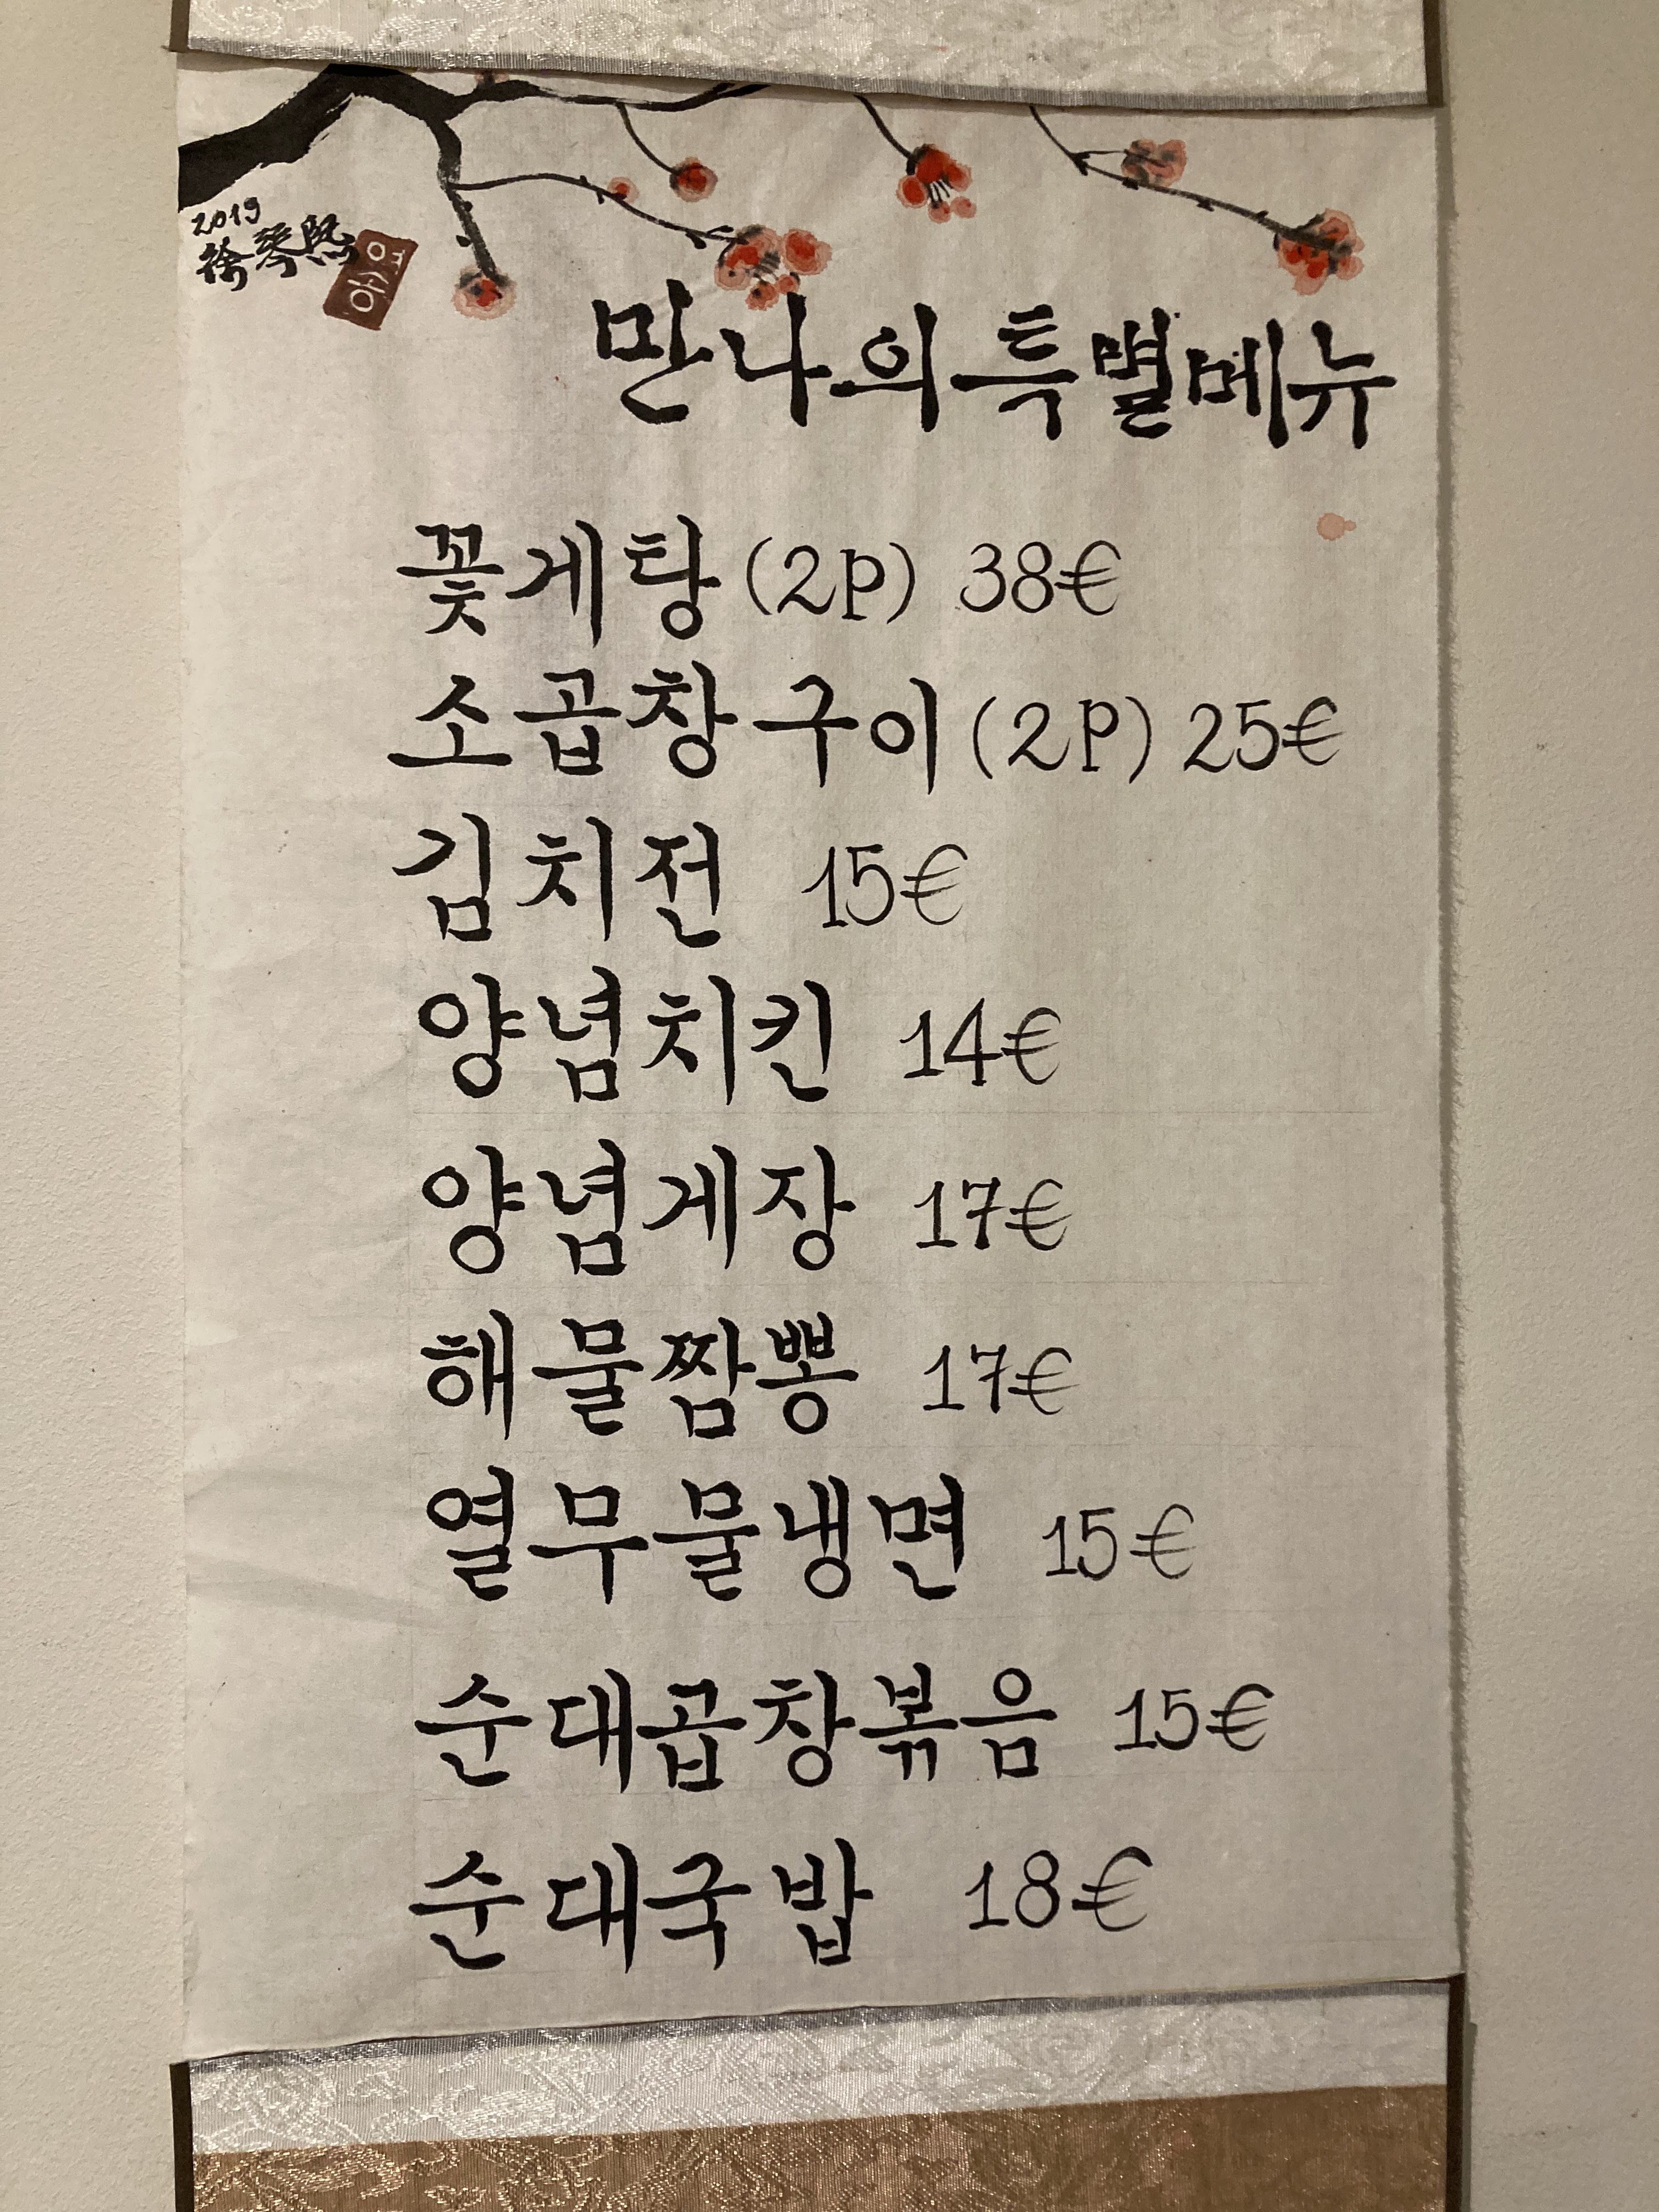 2019
徐琴熙
만나의특별메뉴
꽃게탕 (2P) 38€
소곱창구이 (2P) 25€
김치전 15€
양념치킨 14€
양념게장 17€
해물짬뽕 17€
열무물냉면 15€
순대곱창볶음 15€
순대국밥 18€